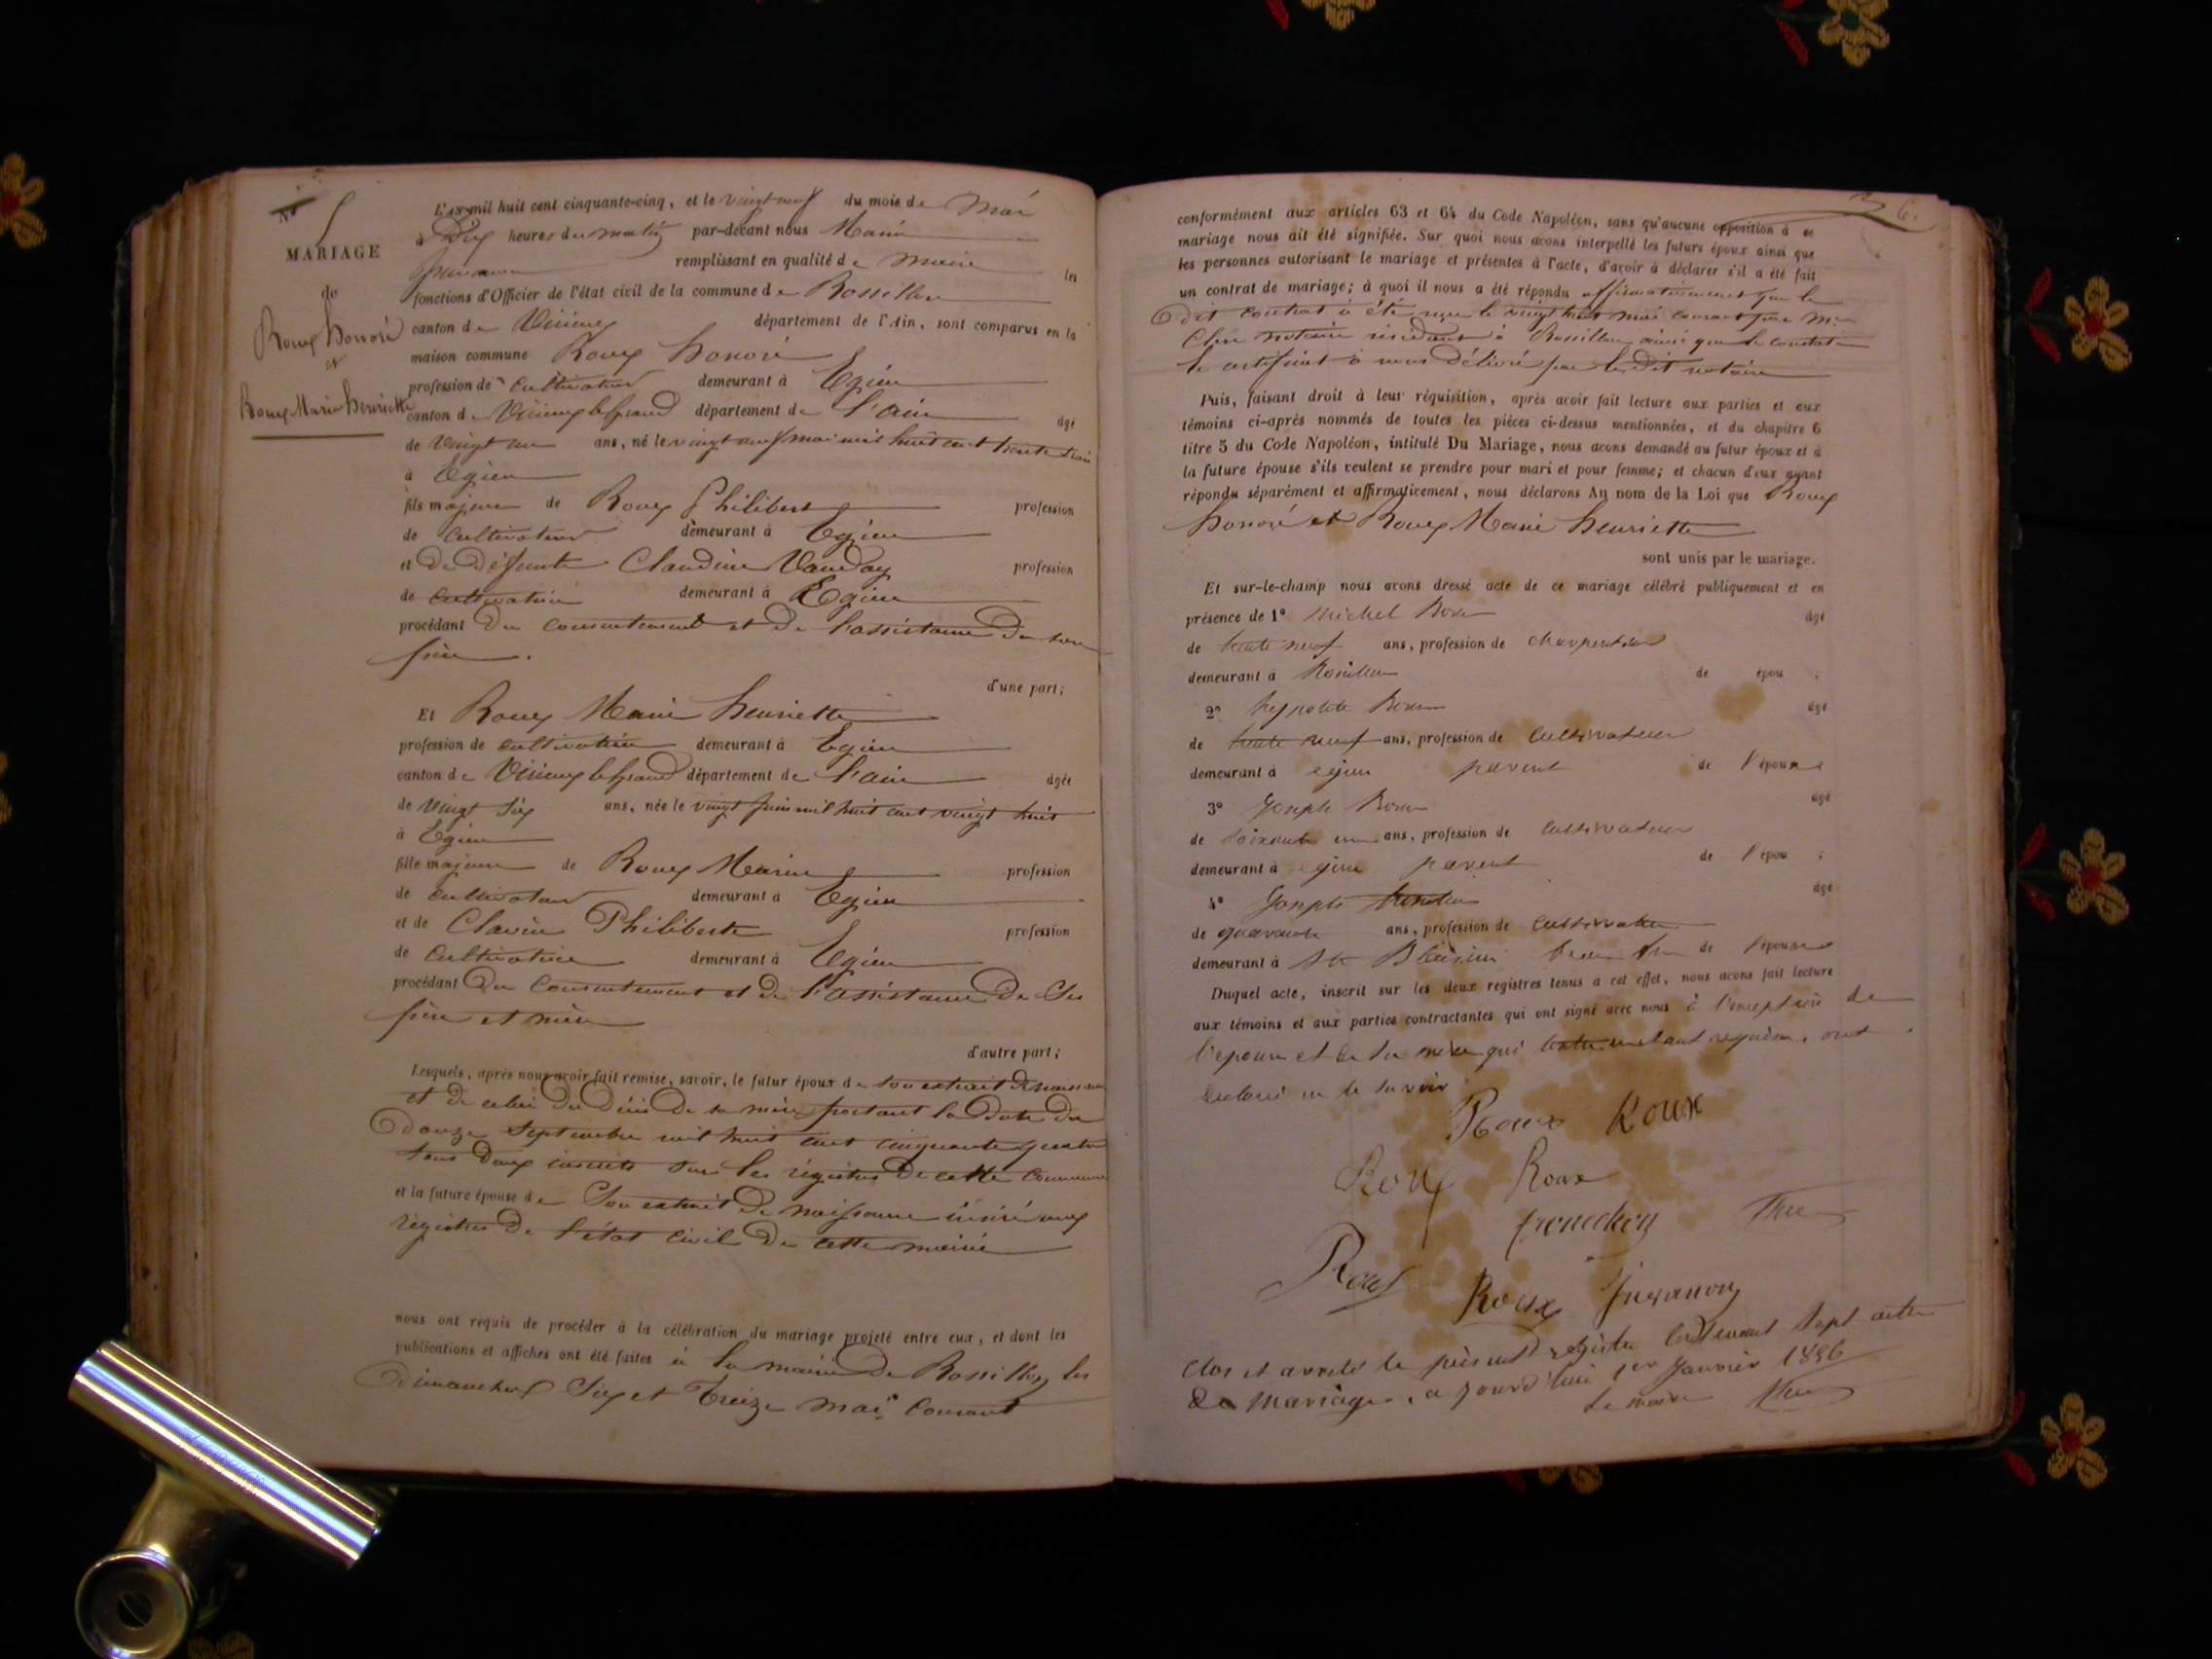 MARIAGE
de
Roux honoré
et
Roux Marie henriette
L'an mil huit cent cinquante-cinq, et le vingt neuf du mois de Mai
à Dix heures du matin par-devant nous Marin
remplissant en qualité de maire les
fonctions d'Officier de l'état civil de la commune de Rossillon
canton de Virieux département de l'Ain, sont comparus en la
maison commune Roux honoré
profession de cultivateur demeurant à Egieu
canton de Virieux le grand département de l'ain âgé
de vingt un ans, né le vingt neuf mai mil huit cent trente trois
à Egieu
fils majeur de Roux Philibert profession
de cultivateur demeurant à Egieu
et de Défunte Claudine Vauday profession
de cultivatrice demeurant à Egieu
procédant du consentement et de l'assistance de son
père.
d'une part;
Et Roux Marie henriette
profession de cultivatrice demeurant à Egieu
canton de Virieux le grand département de l'ain âgée
de vingt six ans, née le vingt juin mil huit cent vingt huit
à Egieu
fille majeure de Roux Marin profession
de cultivateur demeurant à Egieu
et de Clavin Philiberte profession
de Cultivatrice demeurant à Egieu
procédant Du Consentement et de l'assistance De Ses
père et mère
d'autre part;
Lesquels, après nous avoir fait remise, savoir, le futur époux de son extrait de naissance
et de celui du Décès De sa mère portant la Date du
Douze Septembre mil huit cent cinquante quatre
tous deux inscrits sur les registres De cette Commune
et la future épouse de Son extrait De naissance inséré aux
registres De l'état Civil De cette mairie
nous ont requis de procéder à la célébration du mariage projeté entre eux, et dont les
publications et affiches ont été faites à la mairie De Rossillon les
dimanches Six et Treize mai Courant
conformément aux articles 63 et 64 du Code Napoléon, sans qu'aucune opposition à ce
mariage nous ait été signifiée. Sur quoi nous avons interpellé les futurs époux ainsi que
les personnes autorisant le mariage et présentes à l'acte, d'avoir à déclarer s'il a été fait
un contrat de mariage; à quoi il nous a été répondu affirmativement que le
dit contrat a été reçu le vingt huit mai courant par Me
notaire résidant à Rossillon ainsi que le constate
le certificat à nous Délivré par le Dit notaire
Puis, faisant droit à leur réquisition, après avoir fait lecture aux parties et aux
témoins ci-après nommés de toutes les pièces ci-dessus mentionnées, et du chapitre 6
titre 5 du Code Napoléon, intitulé Du Mariage, nous avons demandé au futur époux et à
la future épouse s'ils veulent se prendre pour mari et pour femme; et chacun d'eux ayant
répondu séparément et affirmativement, nous déclarons Au nom de la Loi que Roux
honoré et Roux Marie henriette
sont unis par le mariage.
Et sur-le-champ nous avons dressé acte de ce mariage célébré publiquement et en
présence de 1° Michel Roux âgé
de trente neuf ans, profession de charpentier
demeurant à Rossillon de épou ;
2° hypolite Roux âgé
de trente neuf ans, profession de cultivateur
demeurant à egieu parent de l'épouse
3° Joseph Roux âgé
de soixante un ans, profession de cultivateur
demeurant à egieu parent de l'épou ;
4° Joseph âgé
de quarante ans, profession de cultivateur
demeurant à de l'épouse
Duquel acte, inscrit sur les deux registres tenus à cet effet, nous avons fait lecture
aux témoins et aux parties contractantes qui ont signé avec nous à l'exception de
l'épouse et de sa mère qui de ce requises, ont
déclaré ne le savoir
Roux Roux
Roux Roux
Roux Roux
Clos et arrêté le présent registre contenant Sept actes
de mariage, aujourd'hui 1er Janvier 1856
Le maire